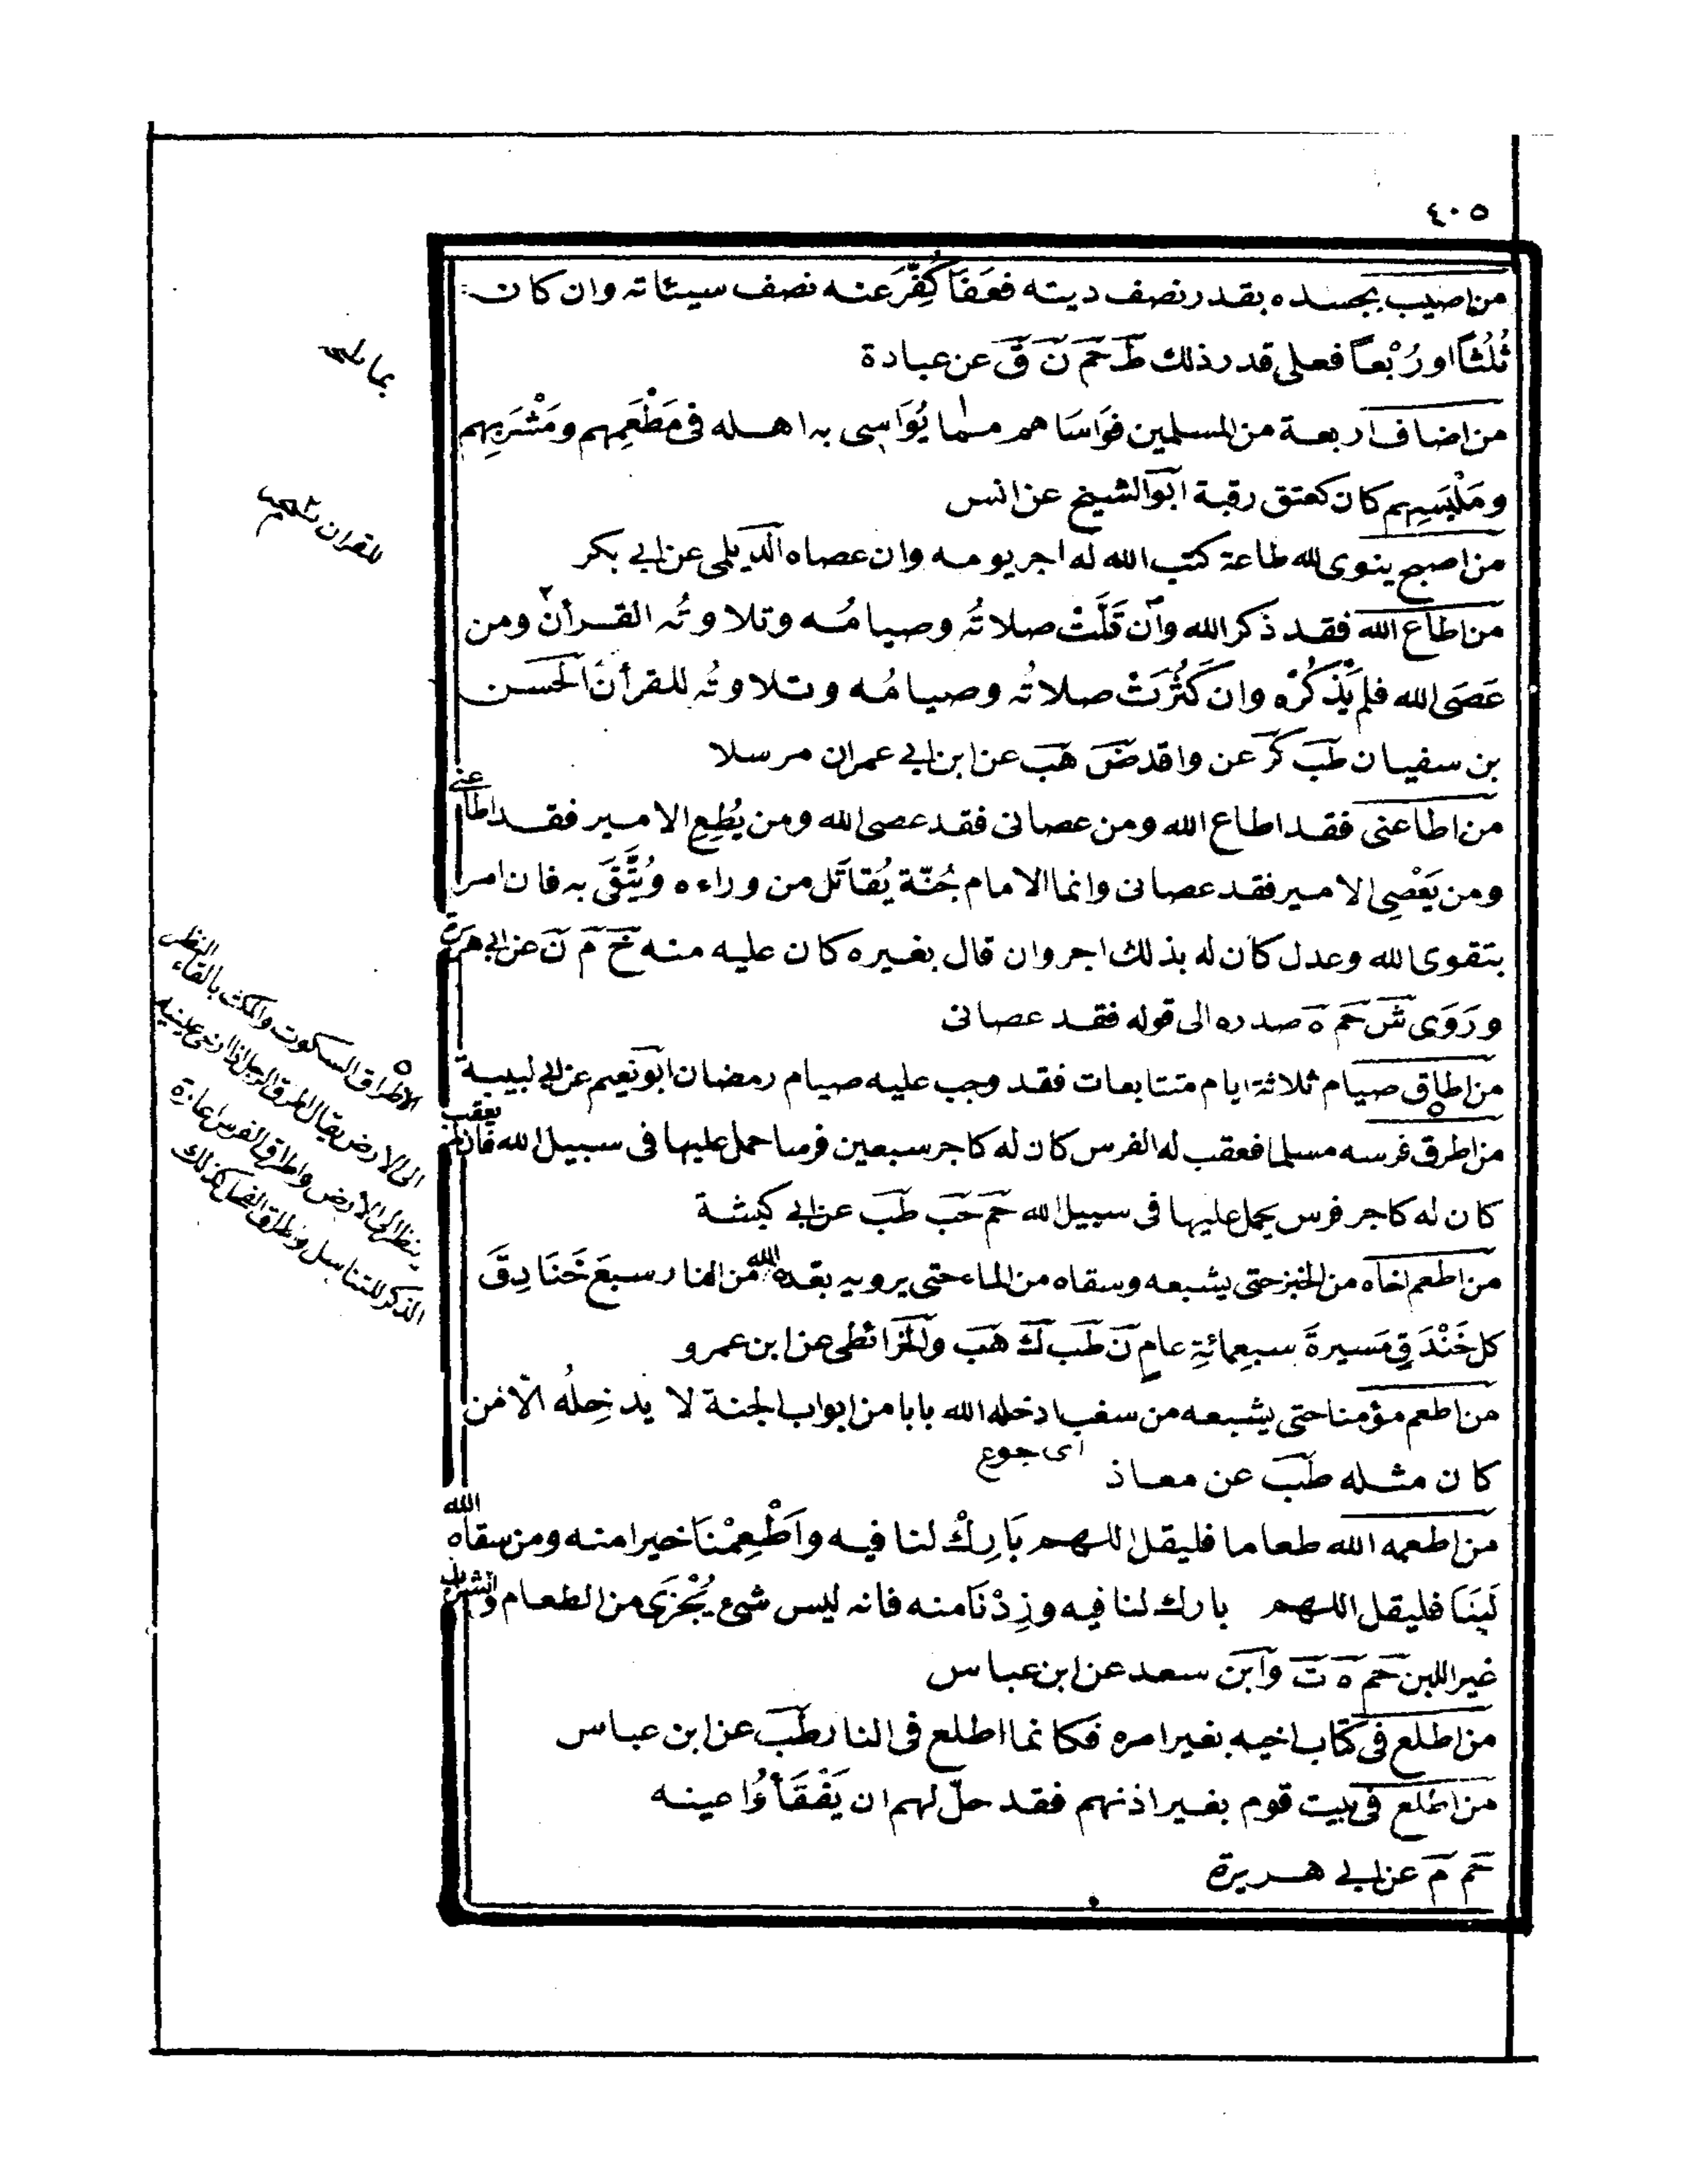 ٤٠٥
من اصيب بجسده بقدر نصف ديته فعَفَا كُفِّرَ عنه نصف سيئاته وان كان
ثُلُثًا او رُبْعًا فعلى قدر ذلك ط حم ن ق عن عبادة
من اضاف اربعة من المسلمين فوَاسَاهم مما يُوَاسِى به اهله فى مَطْعَمِهم ومَشْرَبِهم
ومَلْبَسِهم كان كعتق رقبة ابو الشيخ عن انس
من اصبح ينوى لله طاعة كتب الله له اجر يومه وان عصاه الديلمى عن ابى بكر
من اطاع الله فقد ذكر الله وان قَلَّتْ صلاتُه وصيامُه وتلاوتُه القرأن ومن
عَصَى الله فلم يَذْكُرْه وان كَثُرَتْ صلاتُه وصيامُه وتلاوتُه للقرأن الحسن
بن سفيان طب كر عن واقد ض هب عن ابن ابى عمران مرسلا
من اطاعنى فقد اطاع الله ومن عصانى فقد عصى الله ومن يُطِعِ الامير فقد اطاعنى
ومن يَعْصِى الامير فقد عصانى وانما الامام جُنّة يُقاتَل من وراءه ويُتَّقَى به فان امر
بتقوى الله وعدل كان له بذلك اجر وان قال بغيره كان عليه منه خ م ن عن ابى هريرة
ورَوَى ش حم ه صدره الى قوله فقد عصانى
من اطاق صيام ثلاثة ايام متتابعات فقد وجب عليه صيام رمضان ابو نعيم عن ابى لبيبة
من اطرق فرسه مسلما فعقب له الفرس كان له كاجر سبعين فرسا حمل عليها فى سبيل الله فان لم يعقب
كان له كاجر فرس يحمل عليها فى سبيل الله حم حب طب عن ابى كبشة
من اطعم اخاه من الخبز حتى يشبعه وسقاه من الماء حتى يرويه بعده الله من النار سبعَ خَنَادِقَ
كل خَنْدَقٍ مَسيرةَ سبعمائةِ عامٍ ن طب ك هب والخرائطى عن ابن عمرو
من اطعم مؤمنا حتى يشبعه من سغب ادخله الله بابا من ابواب الجنة لا يدخِلُه الا من
اى جوع
كان مثله طب عن معاذ
من اطعمه الله طعاما فليقل اللهم بَارِكْ لنا فيه واَطْعِمْنَا خيرا منه ومن سقاه الله
لَبَنًا فليقل اللهم بارك لنا فيه وزِدْنَا منه فانه ليس شئ يُجْزِى من الطعام والشراب
غير اللبن حم ه ت وابن سعد عن ابن عباس
من اطلع فى كتاب اخيه بغير امره فكانما اطلع فى النار طب عن ابن عباس
من اطلع فى بيت قوم بغير اذنهم فقد حلّ لهم ان يَفْقَأُوا عينه
حم م عن ابى هريرة
للقران
الاطراق السكوت والمكث بالقاء النظر
الى الارض يقال اطرق الرجل اذا ارخى عينيه
ينظر الى الارض واطراق الفرس اعارة
الذكر للتناسل كذلك